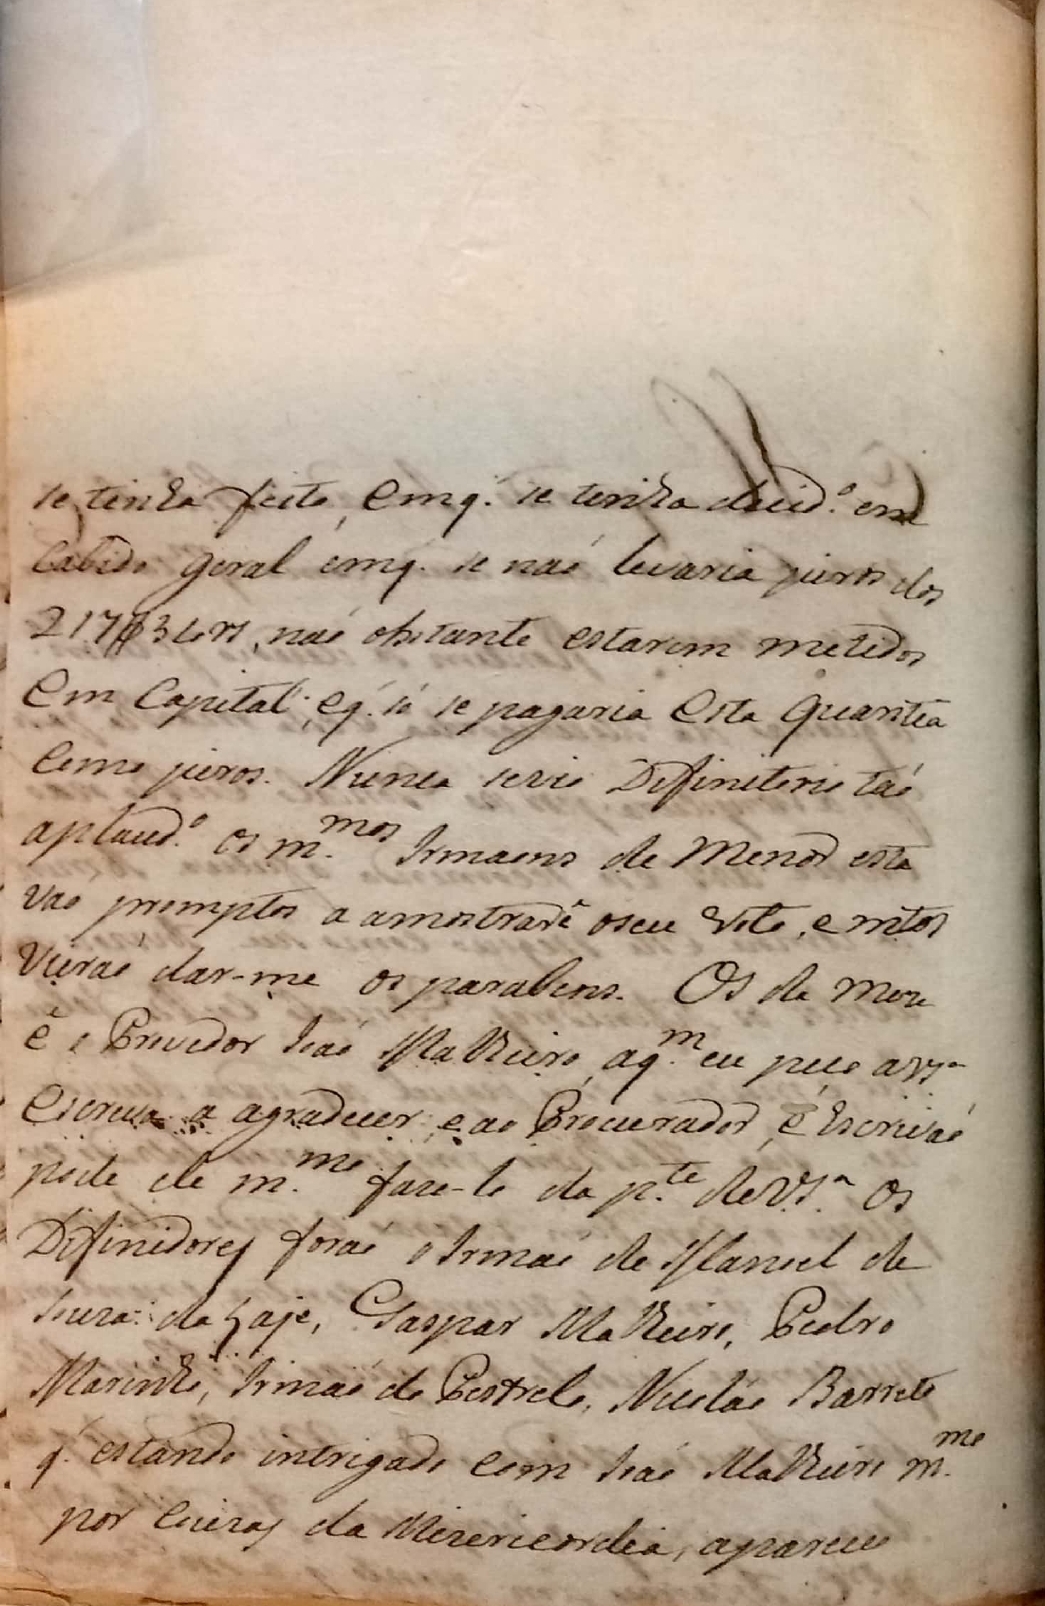 se tinha feito, e mq. se tinha decid.º em
Cabido geral emq. se naó levaria juros dos
naó obstante estarem metidos
Em Capital; eq. só se pagaria esta quantia
Como juros. Nunca servio Difinitorio taó
aplaud.º Os m.mos Irmaens de Menor esta
vaó promptos a amostrarẽ oseu Voto, e mtos
Vieraó dar-me os parabens. Os de mor
é o Provedor Joaó Malheiro, aq.m eu peço a VSª
Escreva a agradecer, e ao Procurador, é Escrivaó
pode ele m.mo faze-lo da p.te deVSª. Os
Difinidores foraó o Irmaó de Manoel de
Souza da Laje, Gaspar Malheiro, Pedro
Marinho, Irmaó do Pestrelo, Nicoláo Barreto
q. estando intrigado com Joaó Malheiro m.mo
por Couzas da Mizericordia, apareceo